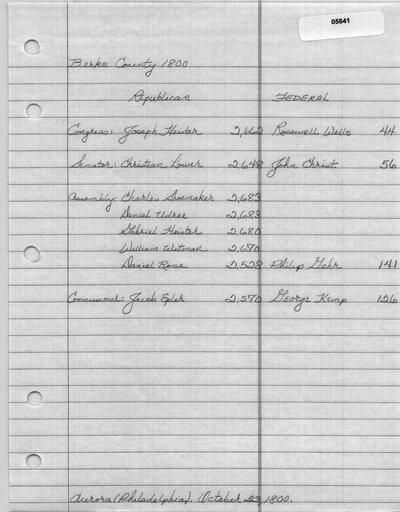 05641
Berks County 1800
Republican FEDERAL
Congress: Joseph Heister 2,662 Rosewell Wells 44
Senator: Christian Lower 2,648 John Christ 56
Assembly: Charles Shoemaker 2,683
Daniel Udree 2,683
Gabriel Heister 2,680
William Witman 2,670
Daniel Rose 2,528 Philip Gehr 141
Commissioner: Jacob Epler 2,570 George Kemp 126
Aurora (Philadelphia). October 23, 1800.